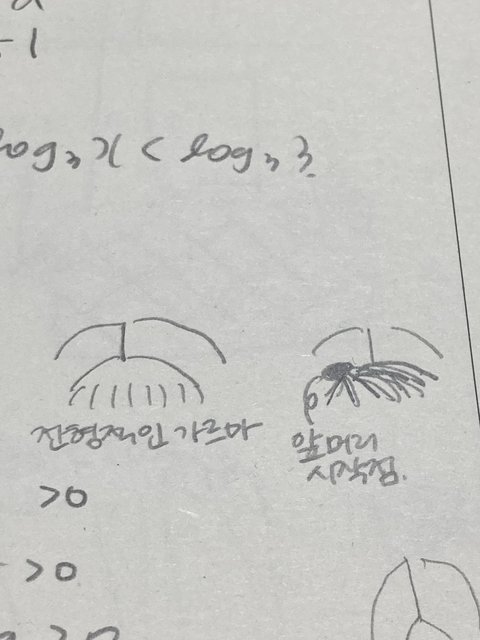 -1
log₃ x < log₃ 3.
전형적인 가르마
앞머리
시작점.
>0
>0